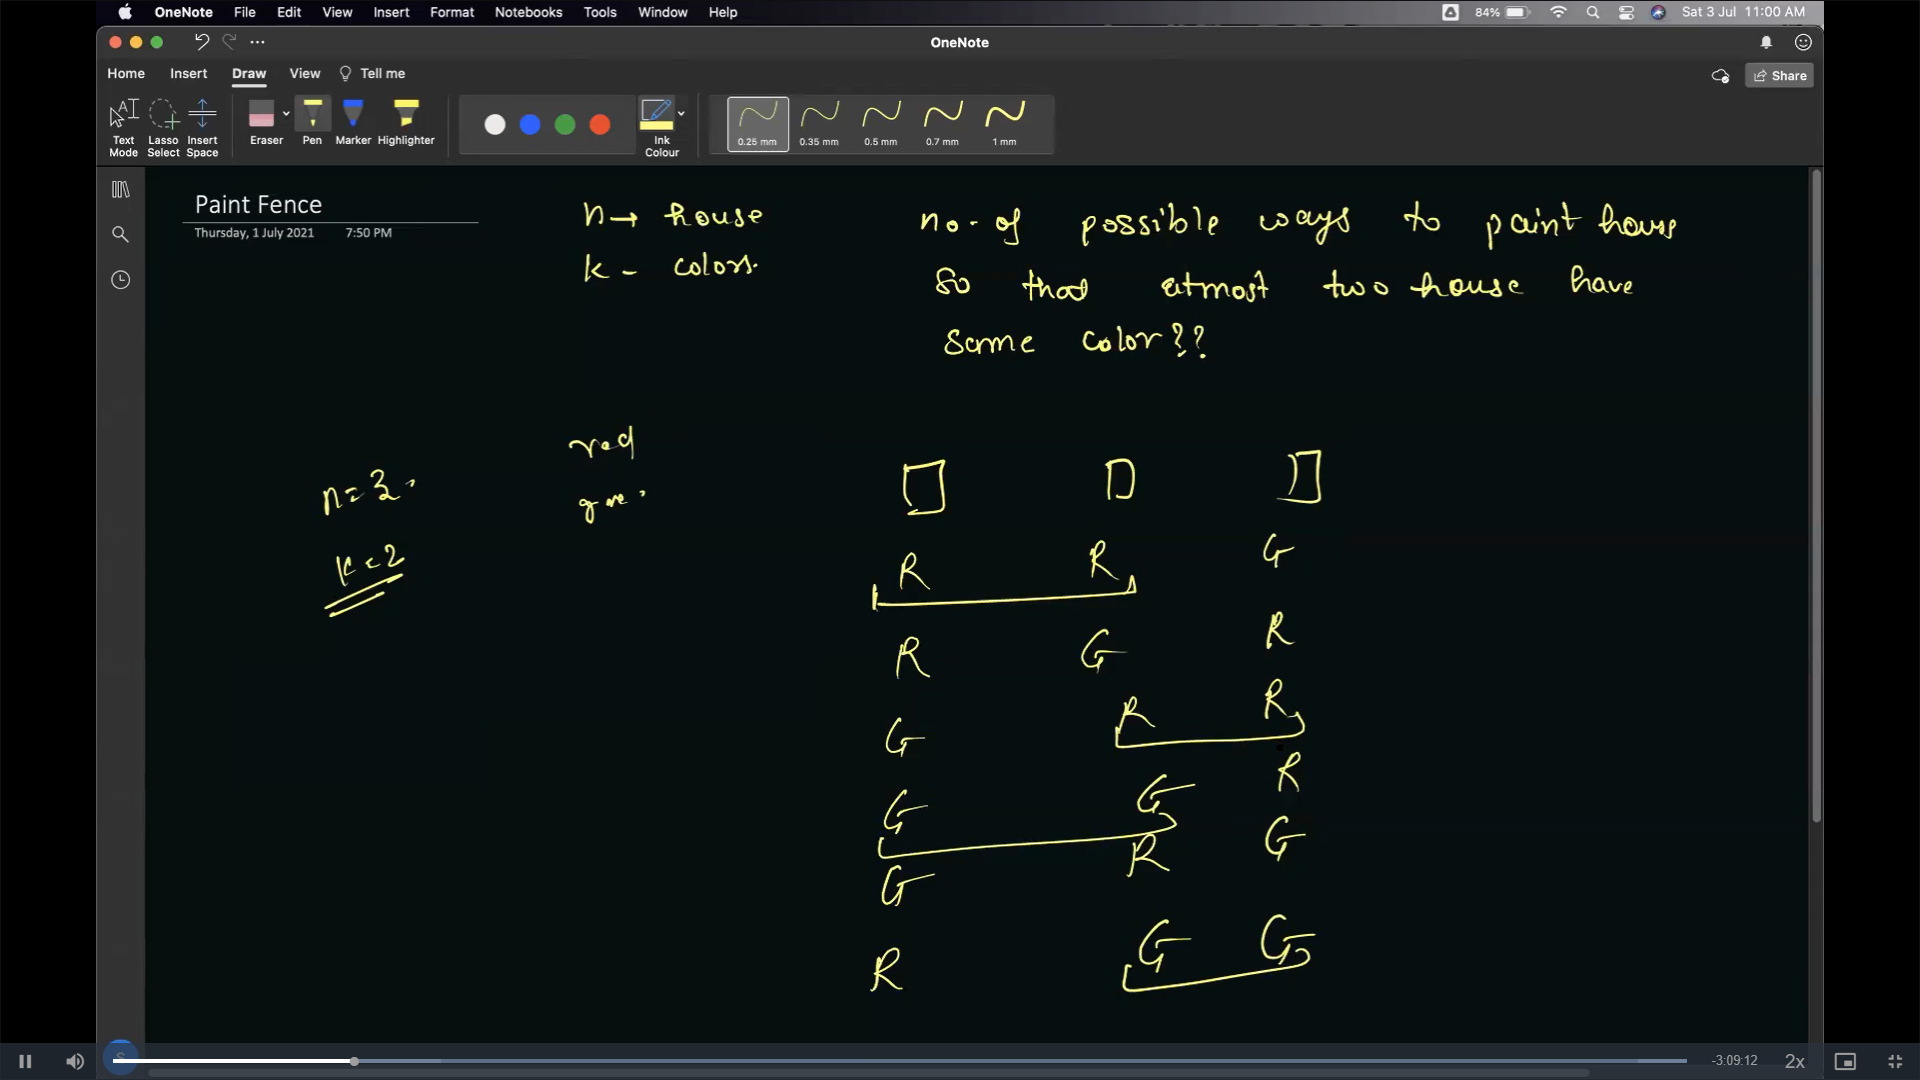 OneNote File Edit View Insert Format Notebooks Tools Window Help 84% Sat 3 Jul 11:00 AM
OneNote
Home Insert Draw View Tell me Share
Text Mode Lasso Select Insert Space Eraser Pen Marker Highlighter Ink Colour 0.25 mm 0.35 mm 0.5 mm 0.7 mm 1 mm
Paint Fence
Thursday, 1 July 2021 7:50 PM
n → house
k - colors.
no. of possible ways to paint house
so that atmost two house have
same color??
red
n = 3
k = 2
R R G
R G R
G R R
G G R
G R G
R G G
-3:09:12 2x